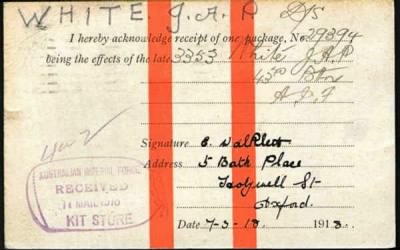 WHITE. J. A. P D/S
I hereby acknowledge receipt of one package, No. 39394
being the effects of the late 3353 White J.A.P
45th Btn
A.I.F
Signature E. Walklett
Address 5 Bath Place
St
Oxford.
AUSTRALIAN IMPERIAL FORCE
RECEIVED
11 MAR 1918
KIT STORE
Date 7-3-18. 1918.